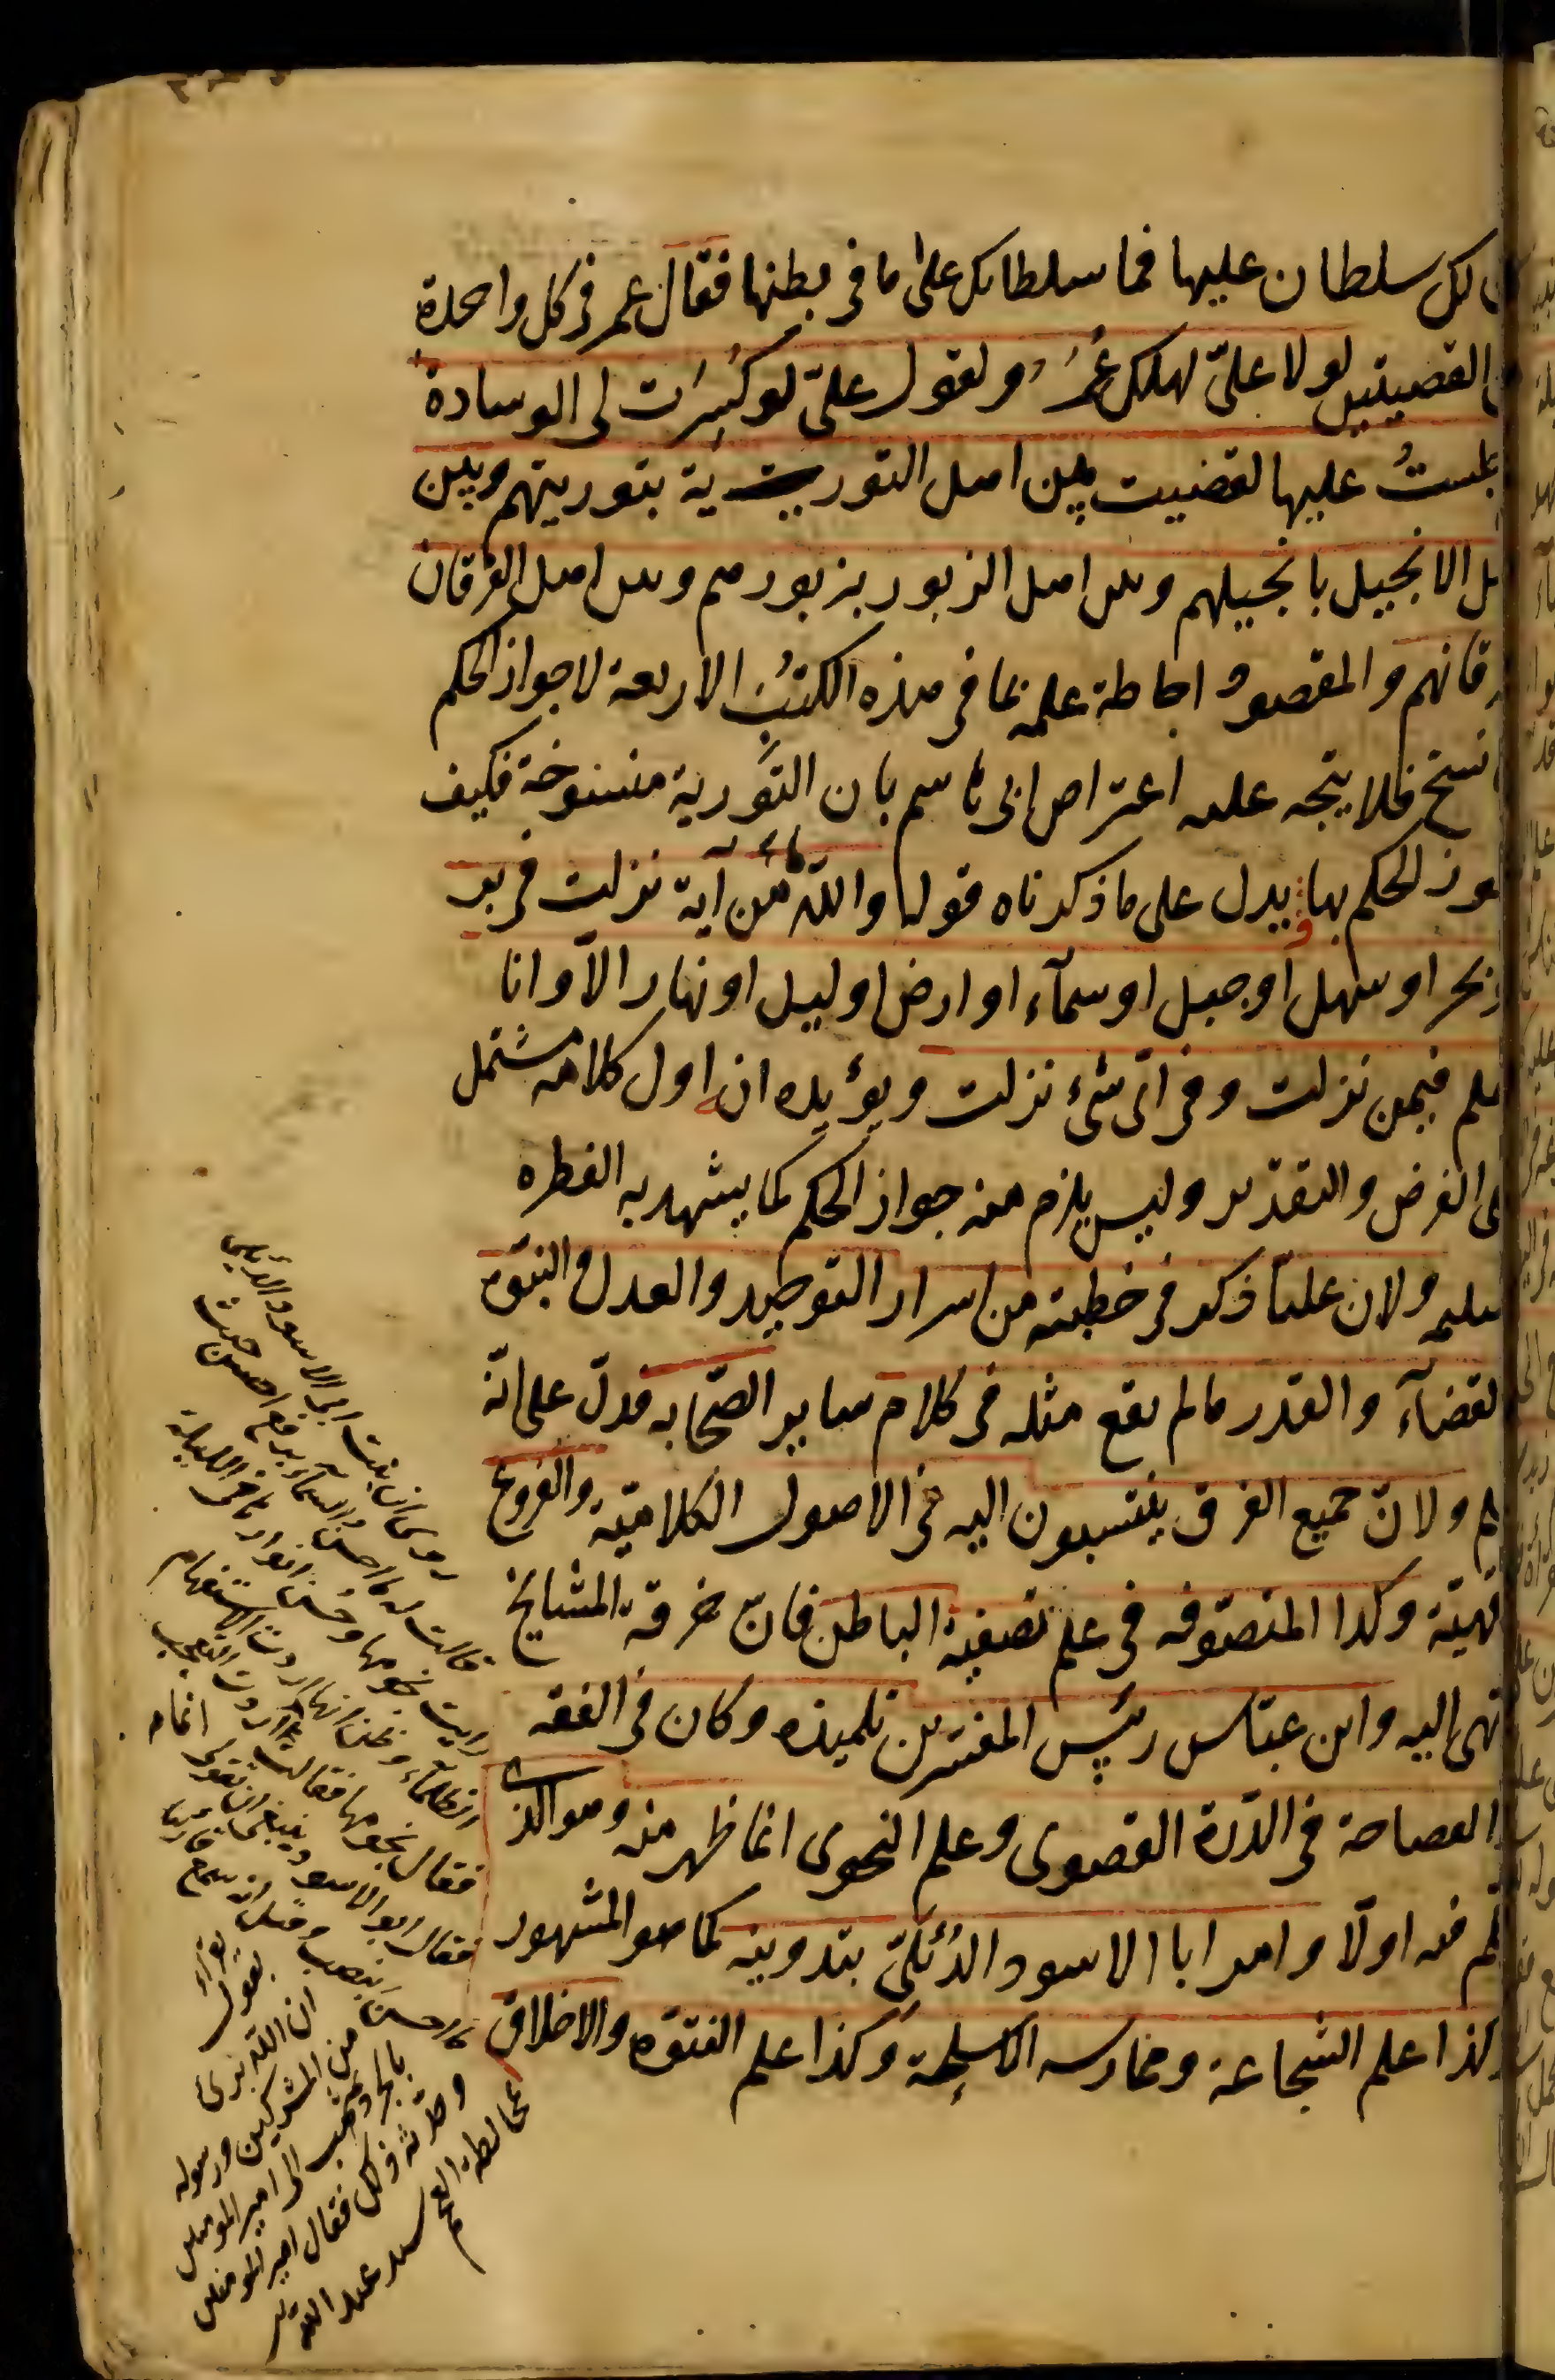 لك سلطان عليها فما سلطانك على ما فى بطنها فقال عمر فى كل واحدة
القصيتين لولا علىّ لهلك عُمَرُ ولقول علىّ لو كُسِرَت لى الوسادة
جلستُ عليها لقضيت بين اهل التورية بتوريتهم وبين
هل الانجيل بانجيلهم وبين اهل الزبور بزبورهم وبين اهل الفرقان
رقانهم والمقصود احاطة علمه بما فى هذه الكتب الاربعة لا جواز الحكم
نسخ فلا يتجه عليه اعتراض ابى هاشم بان التَّورية منسوخة فكيف
جوز الحكم بها ويدل على ما ذكرناه قوله والله ما من آية نزلت فى بر
بحر او سهل او جبل او سمآء او ارض او ليل او نهار الّا وانا
علم فيمن نزلت وفى اىّ شئ نزلت ويؤيده ان اول كلامه مشتمل
لى الفرض والتقدير وليس يلزم منه جواز الحكم كما يشهد به الفطره
سليمه ولان عليّا ذكر فى خطبته من اسرار التوحيد والعدل والنبّوه
لقضآء والقدر ما لم يقع مثله فى كلام ساير الصّحابه فدلّ على انّه
لم ولانّ جميع الفرق ينتسبون اليه فى الاصول الكلاميّة والفروع
قهيّة وكذا المتصوّفه فى علم تصفية الباطن فانّ خرقة المشايخ
تهى اليه وابن عبّاس رئيس المفسّرين تلميذه وكان فى الفقه
والفصاحة فى الدّرة القصوى وعلم النحوى انما ظهر منه وهو الذى
تكلم فيه اولّا وامر ابا الاسود الدُئلىّ بتدوينه كما هو المشهور
وكذا علم الشجاعة وممارسه الاسلحة وكذا علم الفتوّه والاخلاق
روى ان بنت ابى الاسود الدئلى
قالت له ما احسن السمآء برفع احسن حيث
رايت نجومها وحُسن انوارها فى الليلة
الظلمآء وظنّ انها اردت الاستفهام
فقال نجومها فقالت اردت التعجب
فقال ابو الاسود ينبغى ان تقول
ما احسنَ بنصب وقيل انه سمع قاريا
يقرء
ان الله برئ
من المشركين ورسوله
بالجر وذهب الى امير المومنين
وحدّثه ذلك فقال امير المومنين
مخالطة العجم سيد عبد الله